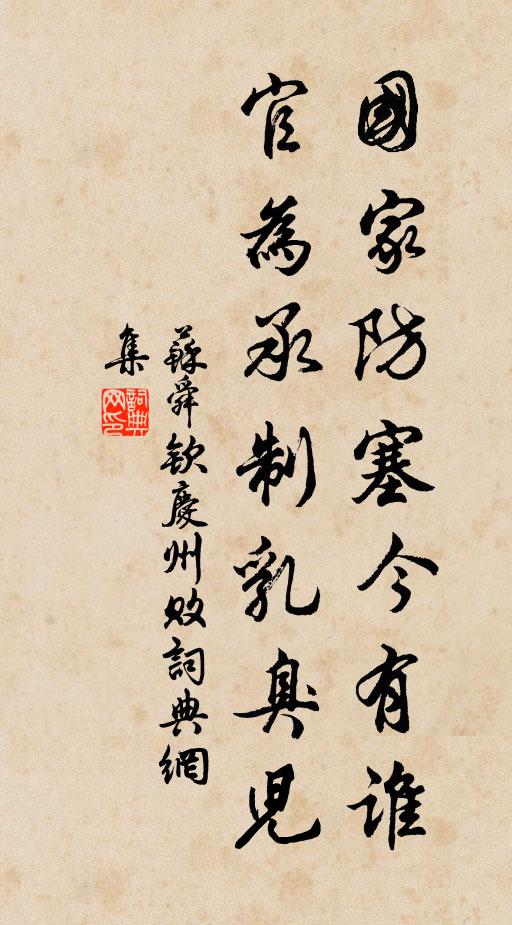 國家防塞今有誰
官為承制乳臭兒
蘇舜欽慶州敗詞典網
集
詞典
网印